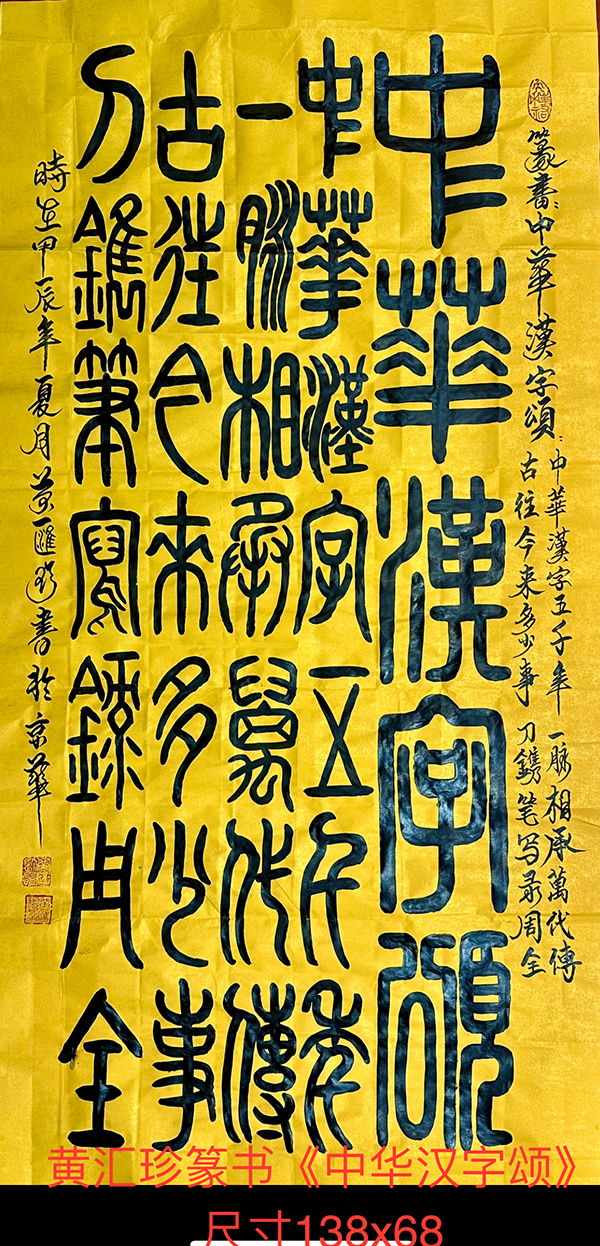 篆書：中華漢字頌：中華漢字五千年 一脉相承萬代傳
古往今来多少事 刀鐫笔写录周全
中華漢字頌
中華漢字五千年
一脈相承萬代傳
古往今來多少事
刀鐫筆寫錄周全
時在甲辰年夏月黄匯珍書於京華
黄汇珍篆书《中华汉字颂》
尺寸138x68